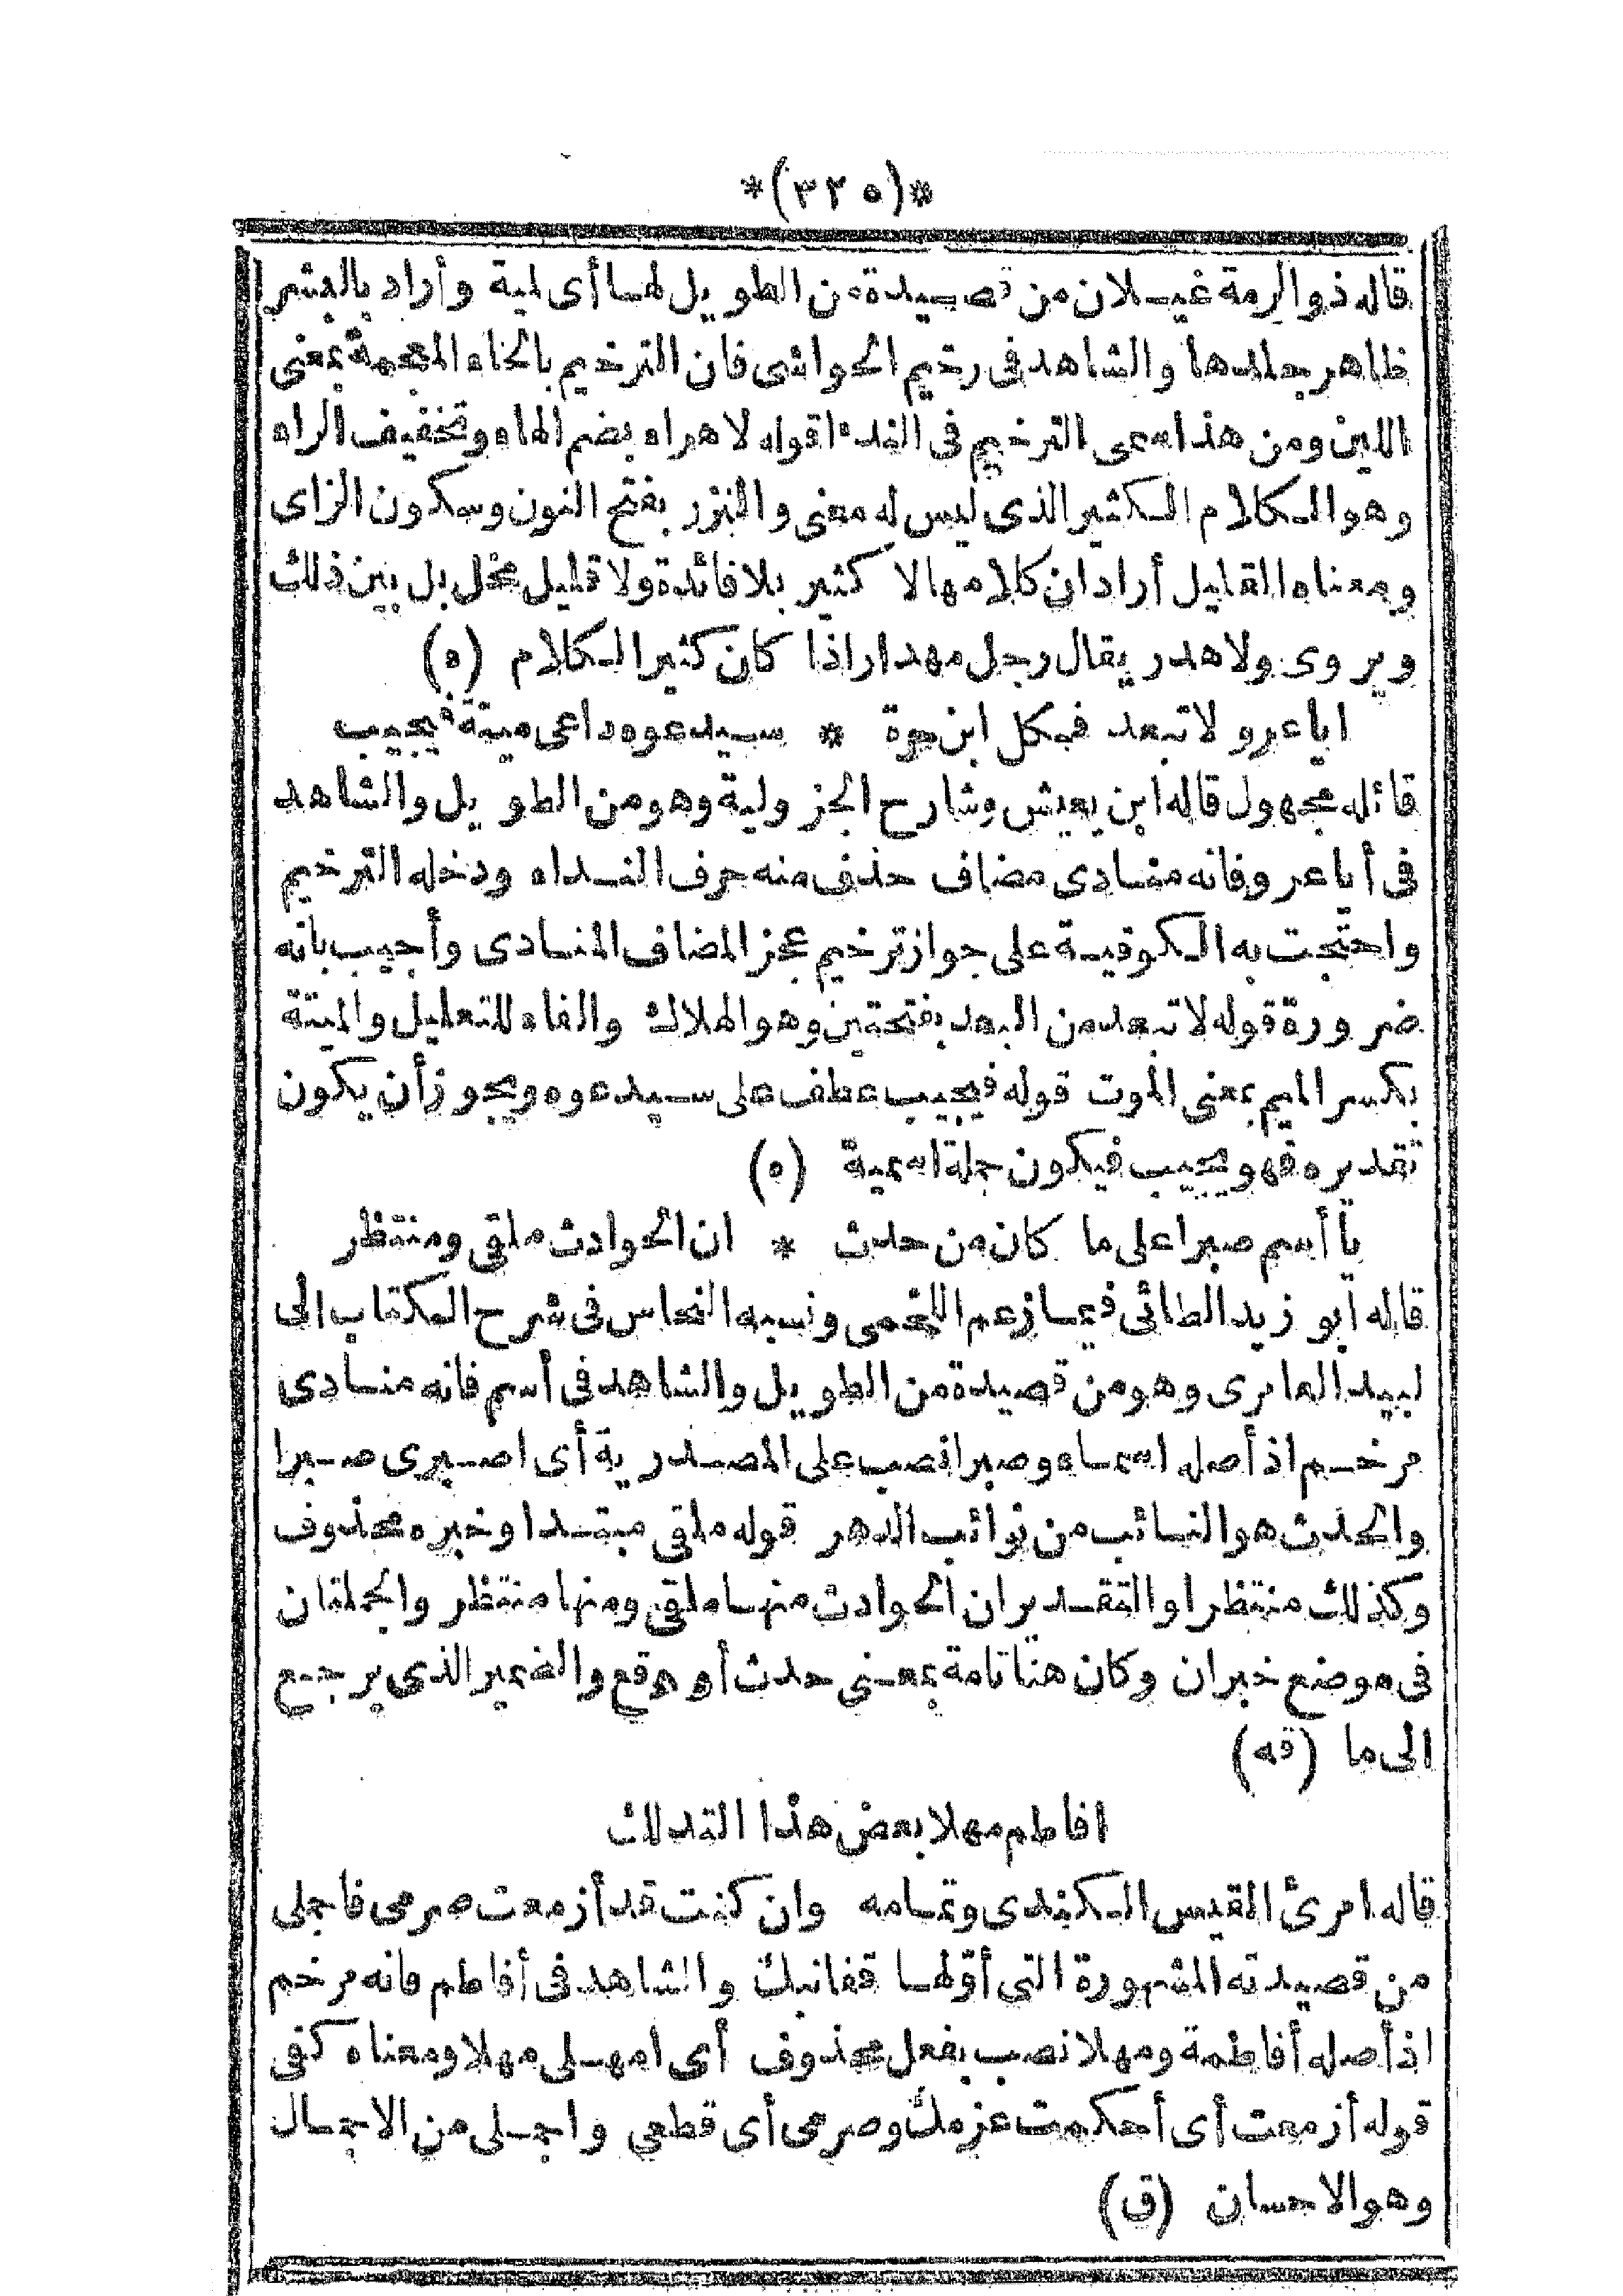 *(٣٢٥)*
قاله ذو الرمة غيلان من قصيدة من الطويل لها أى لمية وأراد بالبشر
ظاهر جلدها والشاهد فى رخيم الحواشى فان الترخيم بالخاء المعجمة بمعنى
اللين ومن هذا سمى الترخيم فى النداء قوله لا هراء بضم الهاء وتخفيف الراء
وهو الكلام الكثير الذى ليس له معنى والنزر بفتح النون وسكون الزاى
ومعناه القليل أراد ان كلامها لا كثير بلا فائدة ولا قليل مخل بل بين ذلك
ويروى ولا هدر يقال رجل مهدار اذا كان كثير الكلام (ه)
ايا عرو لا تبعد فكل ابن حرة * سيدعوه داعى ميتة فيجيب
قائله مجهول قاله ابن يعيش وشارح الجزولية وهو من الطويل والشاهد
فى أبا عروفانه منادى مضاف حذف منه حرف النداء ودخله الترخيم
واحتجت به الكوفية على جواز ترخيم عجز المضاف المنادى وأجيب بانه
ضرورة قوله لا تبعد من البعد بفتحتين وهو الهلاك والفاء للتعليل والميتة
بكسر الميم بمعنى الموت قوله فيجيب عطف على سيدعوه ويجوز أن يكون
تقديره فهو يجيب فيكون جملة اسمية (ه)
يا أسم صبرا على ما كان من حدث * ان الحوادث ملقى ومنتظر
قاله أبو زيد الطائى فيما زعم اللخمى ونسبه النحاس فى شرح الكتاب الى
لبيد العامرى وهو من قصيدة من الطويل والشاهد فى أسم فانه منادى
مرخم اذ أصله اسماء وصبرا نصب على المصدرية أى اصبرى صبرا
والحدث هو النائب من نوائب الدهر قوله ملقى مبتدا وخبره محذوف
وكذلك منتظر او التقدير ان الحوادث منها ملقى ومنها منتظر والجملتان
فى موضع خبران وكان هنا تامة بمعنى حدث أو وقع والضمير الذى يرجع
الى ما (قه)
افاطم مهلا بعض هذا التدلل
قاله امرئ القيس الكندى وتمامه وان كنت قد أزمعت صرمى فاجملى
من قصيدته المشهورة التى أوّلها قفانبك والشاهد فى أفاطم فانه مرخم
اذ أصله أفاطمة ومهلا نصب بفعل محذوف أى امهلى مهلا ومعناه كفى
قوله أزمعت أى أحكمت عزمك وصرمى أى قطعى واجملى من الاجمال
وهو الاحسان (ق)